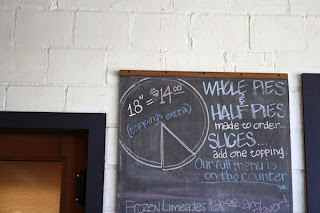 18" = $14.00
(toppings extra)
WHOLE PIES
&
HALF PIES
made to order...
SLICES...
add one topping.
Our full menu is
on the counter
Frozen Limeades